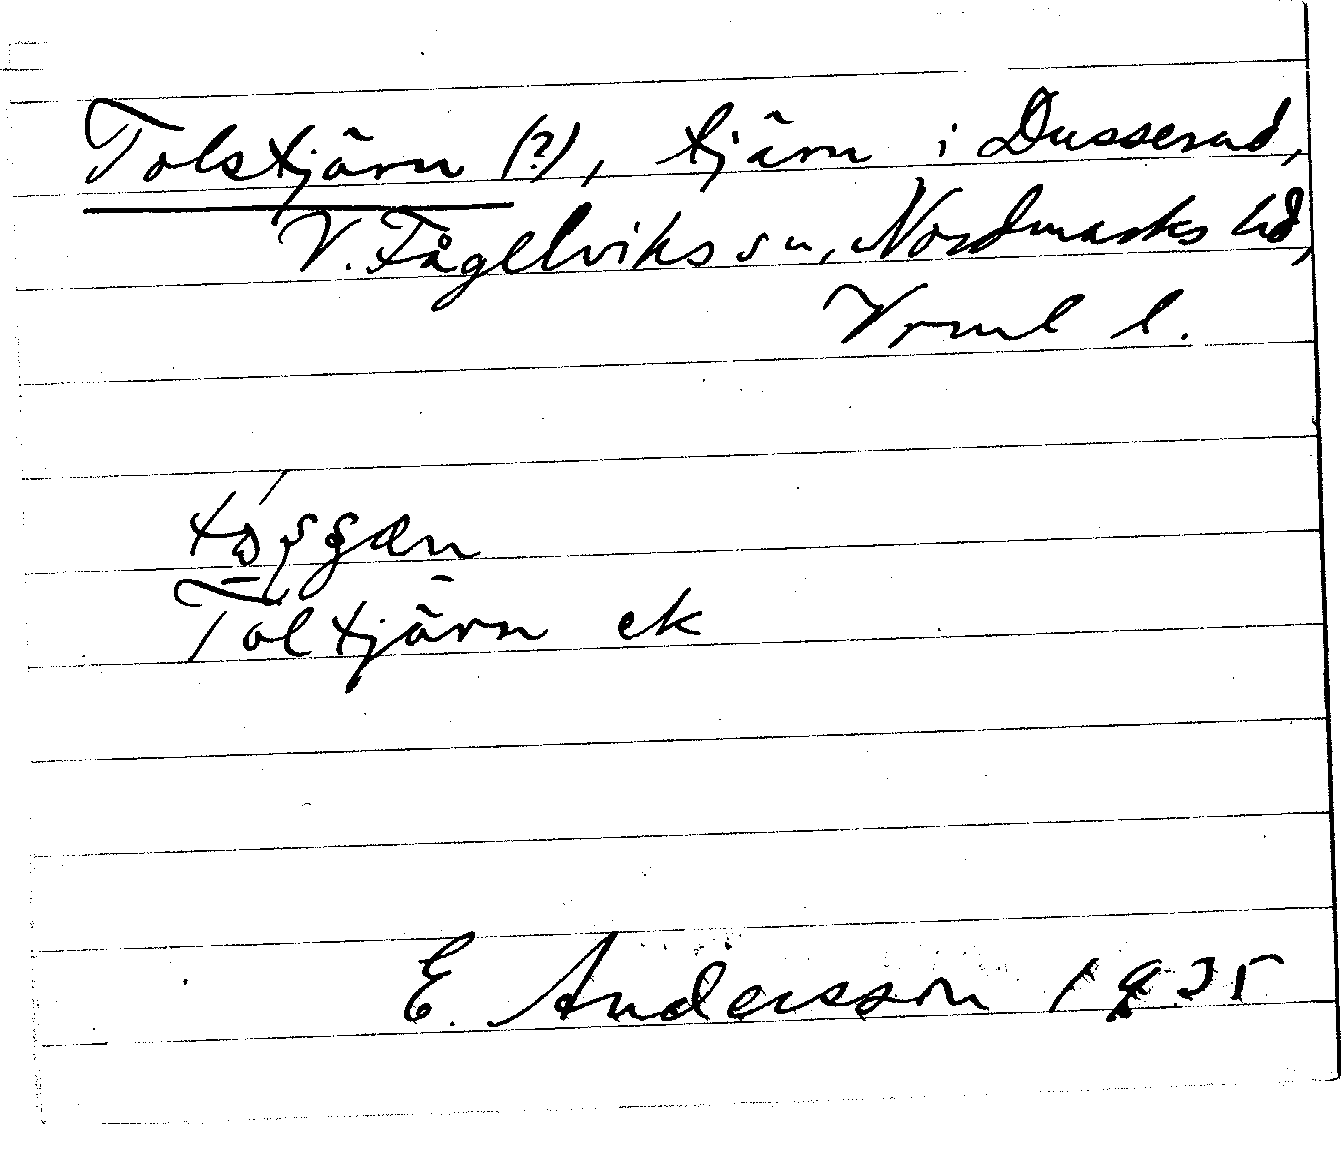 Tolstjärn (?), tjärn i Dusserud,
V. Fågelviks sn, Nordmarks hd,
Vrml l.
Toltjärn ek
E. Andersson 1935